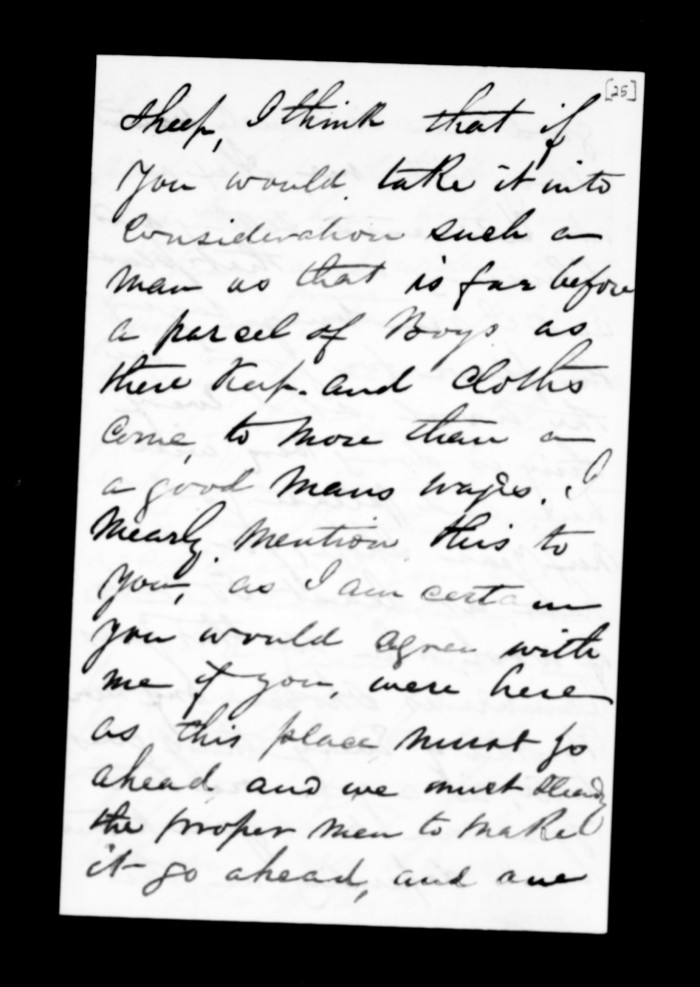 [25]
sheep, I think that if
you would take it into
consideration such a
man as that is far before
a parcel of Boys as
there Keep. and cloths
come, to more than a
a good mans wages. I
nearly mention this to
you, as I am certain
you would agree with
me if you, were here
as this place must go
ahead and we must
the proper men to make
it go ahead, and one